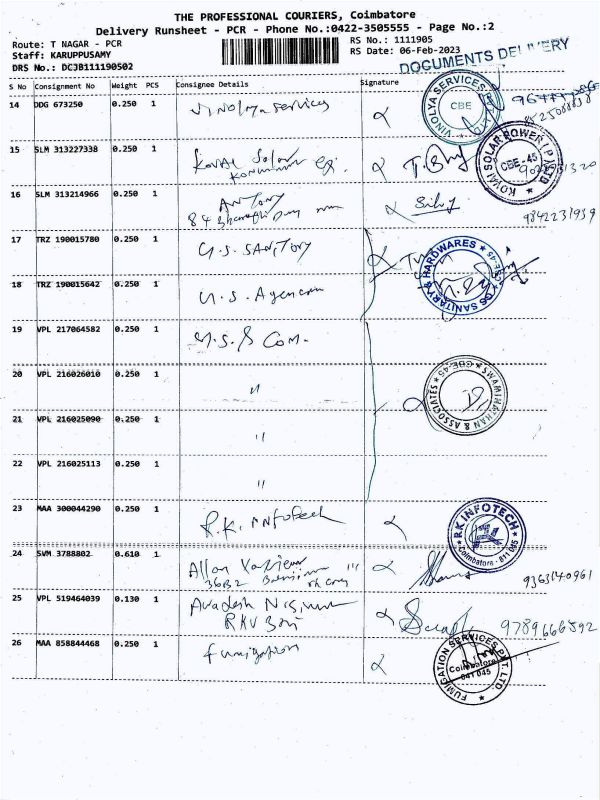 THE PROFESSIONAL COURIERS, Coimbatore
Delivery Runsheet - PCR - Phone No.:0422-3505555 - Page No.:2
Route: T NAGAR - PCR
RS No.: 1111905
Staff: KARUPPUSAMY
RS Date: 06-Feb-2023
DRS No.: DC3B111190502
DOCUMENTS DELIVERY
S No Consignment No Weight PCS Consignee Details Signature
14 DDG 673250 0.250 1 Vinolya Services
VINOLYA SERVICES CBE
15 SLM 313227338 0.250 1 Kovai Solar
KOVAI SOLAR POWER (P) LTD CBE-45
16 SLM 313214966 0.250 1 Antony
84 Bharathi
9842231939
17 TRZ 190015780 0.250 1 U.S. SANITORY
SANITARY & HARDWARES CBE-45
18 TRZ 190015642 0.250 1 U.S. Agencies
19 VPL 217064582 0.250 1 M.S.& Com.
20 VPL 216026010 0.250 1 "
SWAMINATHAN & ASSOCIATES CBE-45
21 VPL 216025090 0.250 1 "
22 VPL 216025113 0.250 1 "
23 MAA 300044290 0.250 1 R.K. Infotech
RK INFOTECH Coimbatore - 641 045
24 SVM 3788802 0.610 1 Allan Xavier
36B2
9363140961
25 VPL 519464039 0.130 1 Avadesh
RKV
9789666592
26 MAA 858844468 0.250 1 fumigation
FUMIGATION SERVICES PVT. LTD. Coimbatore 641 045